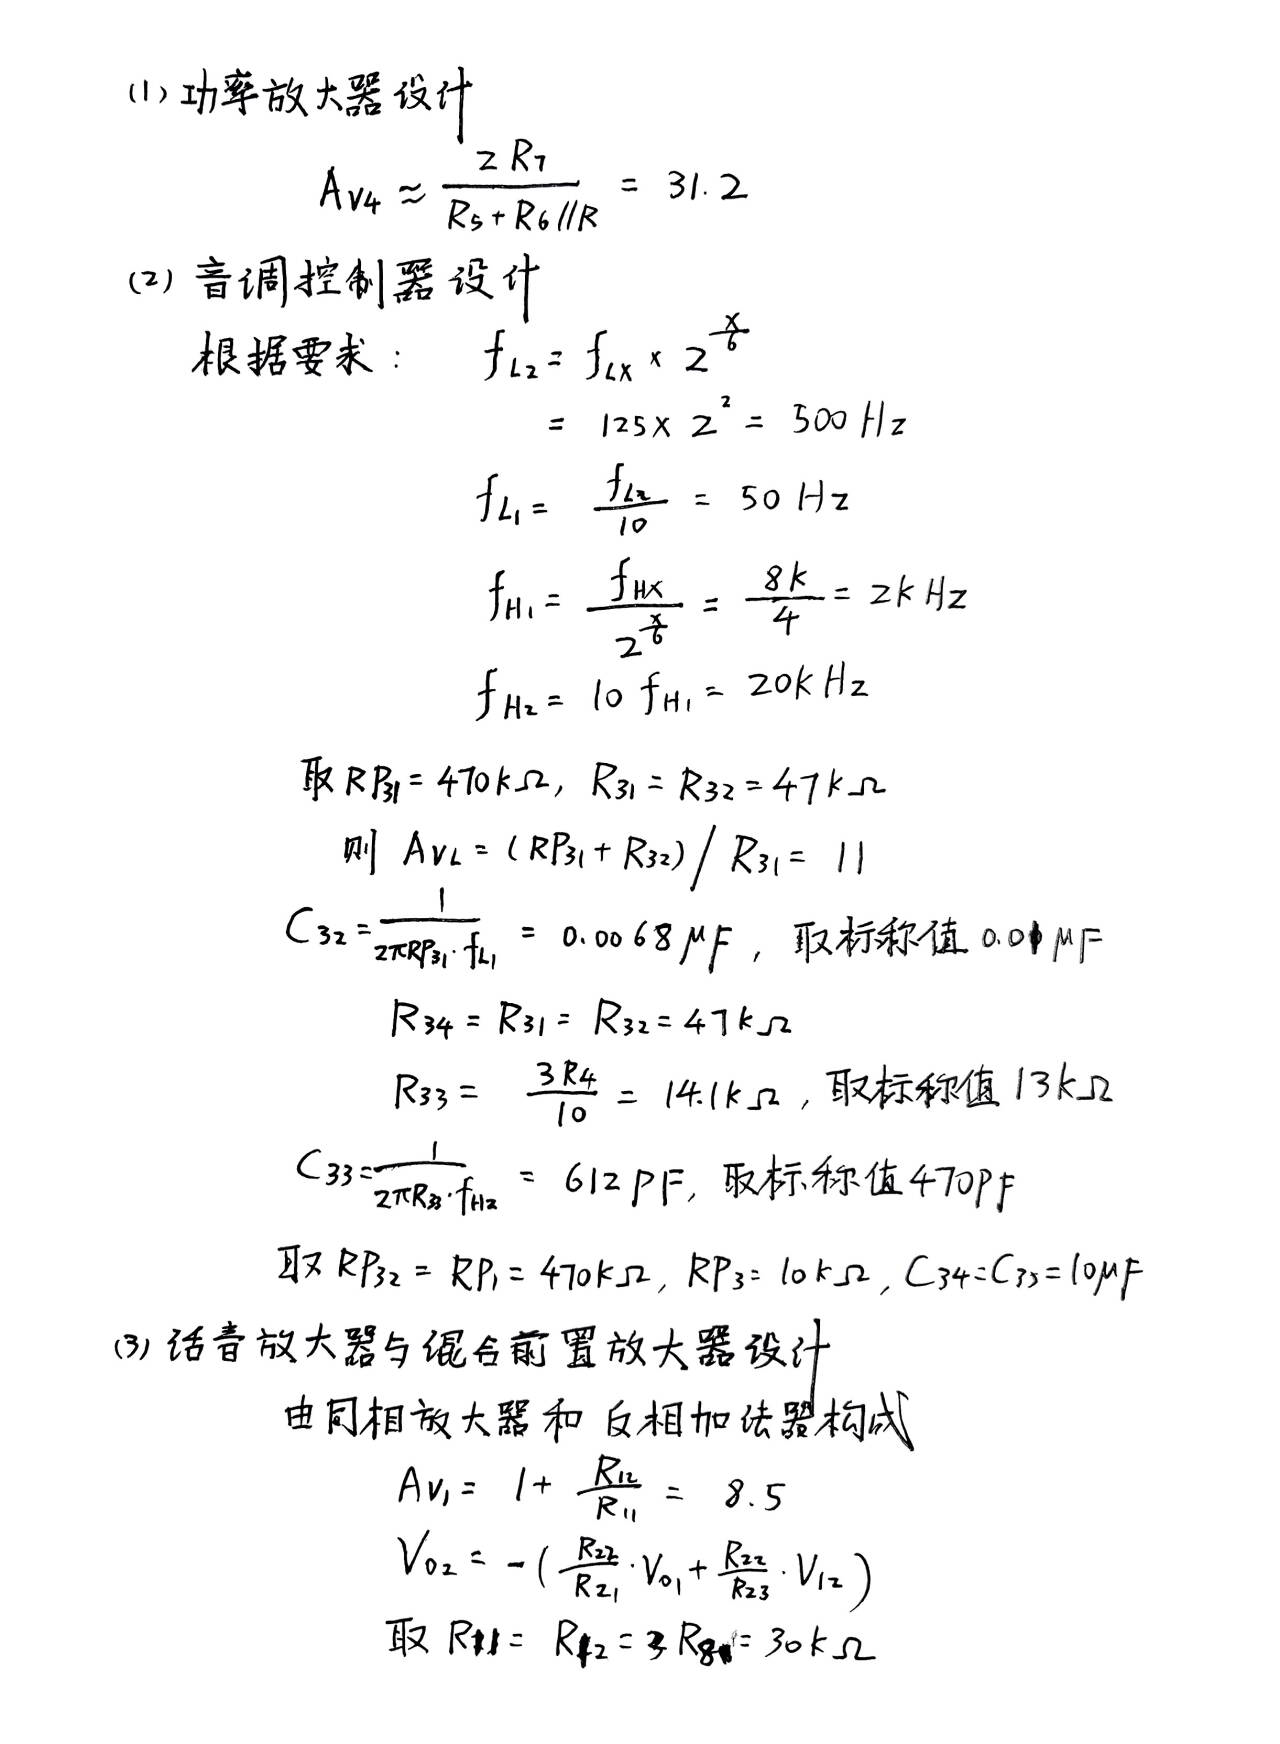 (1) 功率放大器设计
AV4 ≈ 2R7 / (R5 + R6 // R) = 31.2
(2) 音调控制器设计
根据要求: fL2 = fLX × 2^(x/6)
= 125 × 2^2 = 500 Hz
fL1 = fL2 / 10 = 50 Hz
fH1 = fHX / 2^(x/6) = 8k / 4 = 2k Hz
fH2 = 10 fH1 = 20k Hz
取 RP31 = 470kΩ, R31 = R32 = 47kΩ
则 AVL = (RP31 + R32) / R31 = 11
C32 = 1 / (2πRP31·fL1) = 0.0068 μF, 取标称值 0.01 μF
R34 = R31 = R32 = 47kΩ
R33 = 3R4 / 10 = 14.1kΩ, 取标称值 13kΩ
C33 = 1 / (2πR33·fH2) = 612 PF, 取标称值 470PF
取 RP32 = RP1 = 470kΩ, RP3 = 10kΩ, C34 = C35 = 10μF
(3) 话音放大器与混合前置放大器设计
由同相放大器和反相加法器构成
AV1 = 1 + R12 / R11 = 8.5
Vo2 = -(R22 / R21 · Vo1 + R22 / R23 · VI2)
取 R11 = R12 = = 30kΩ